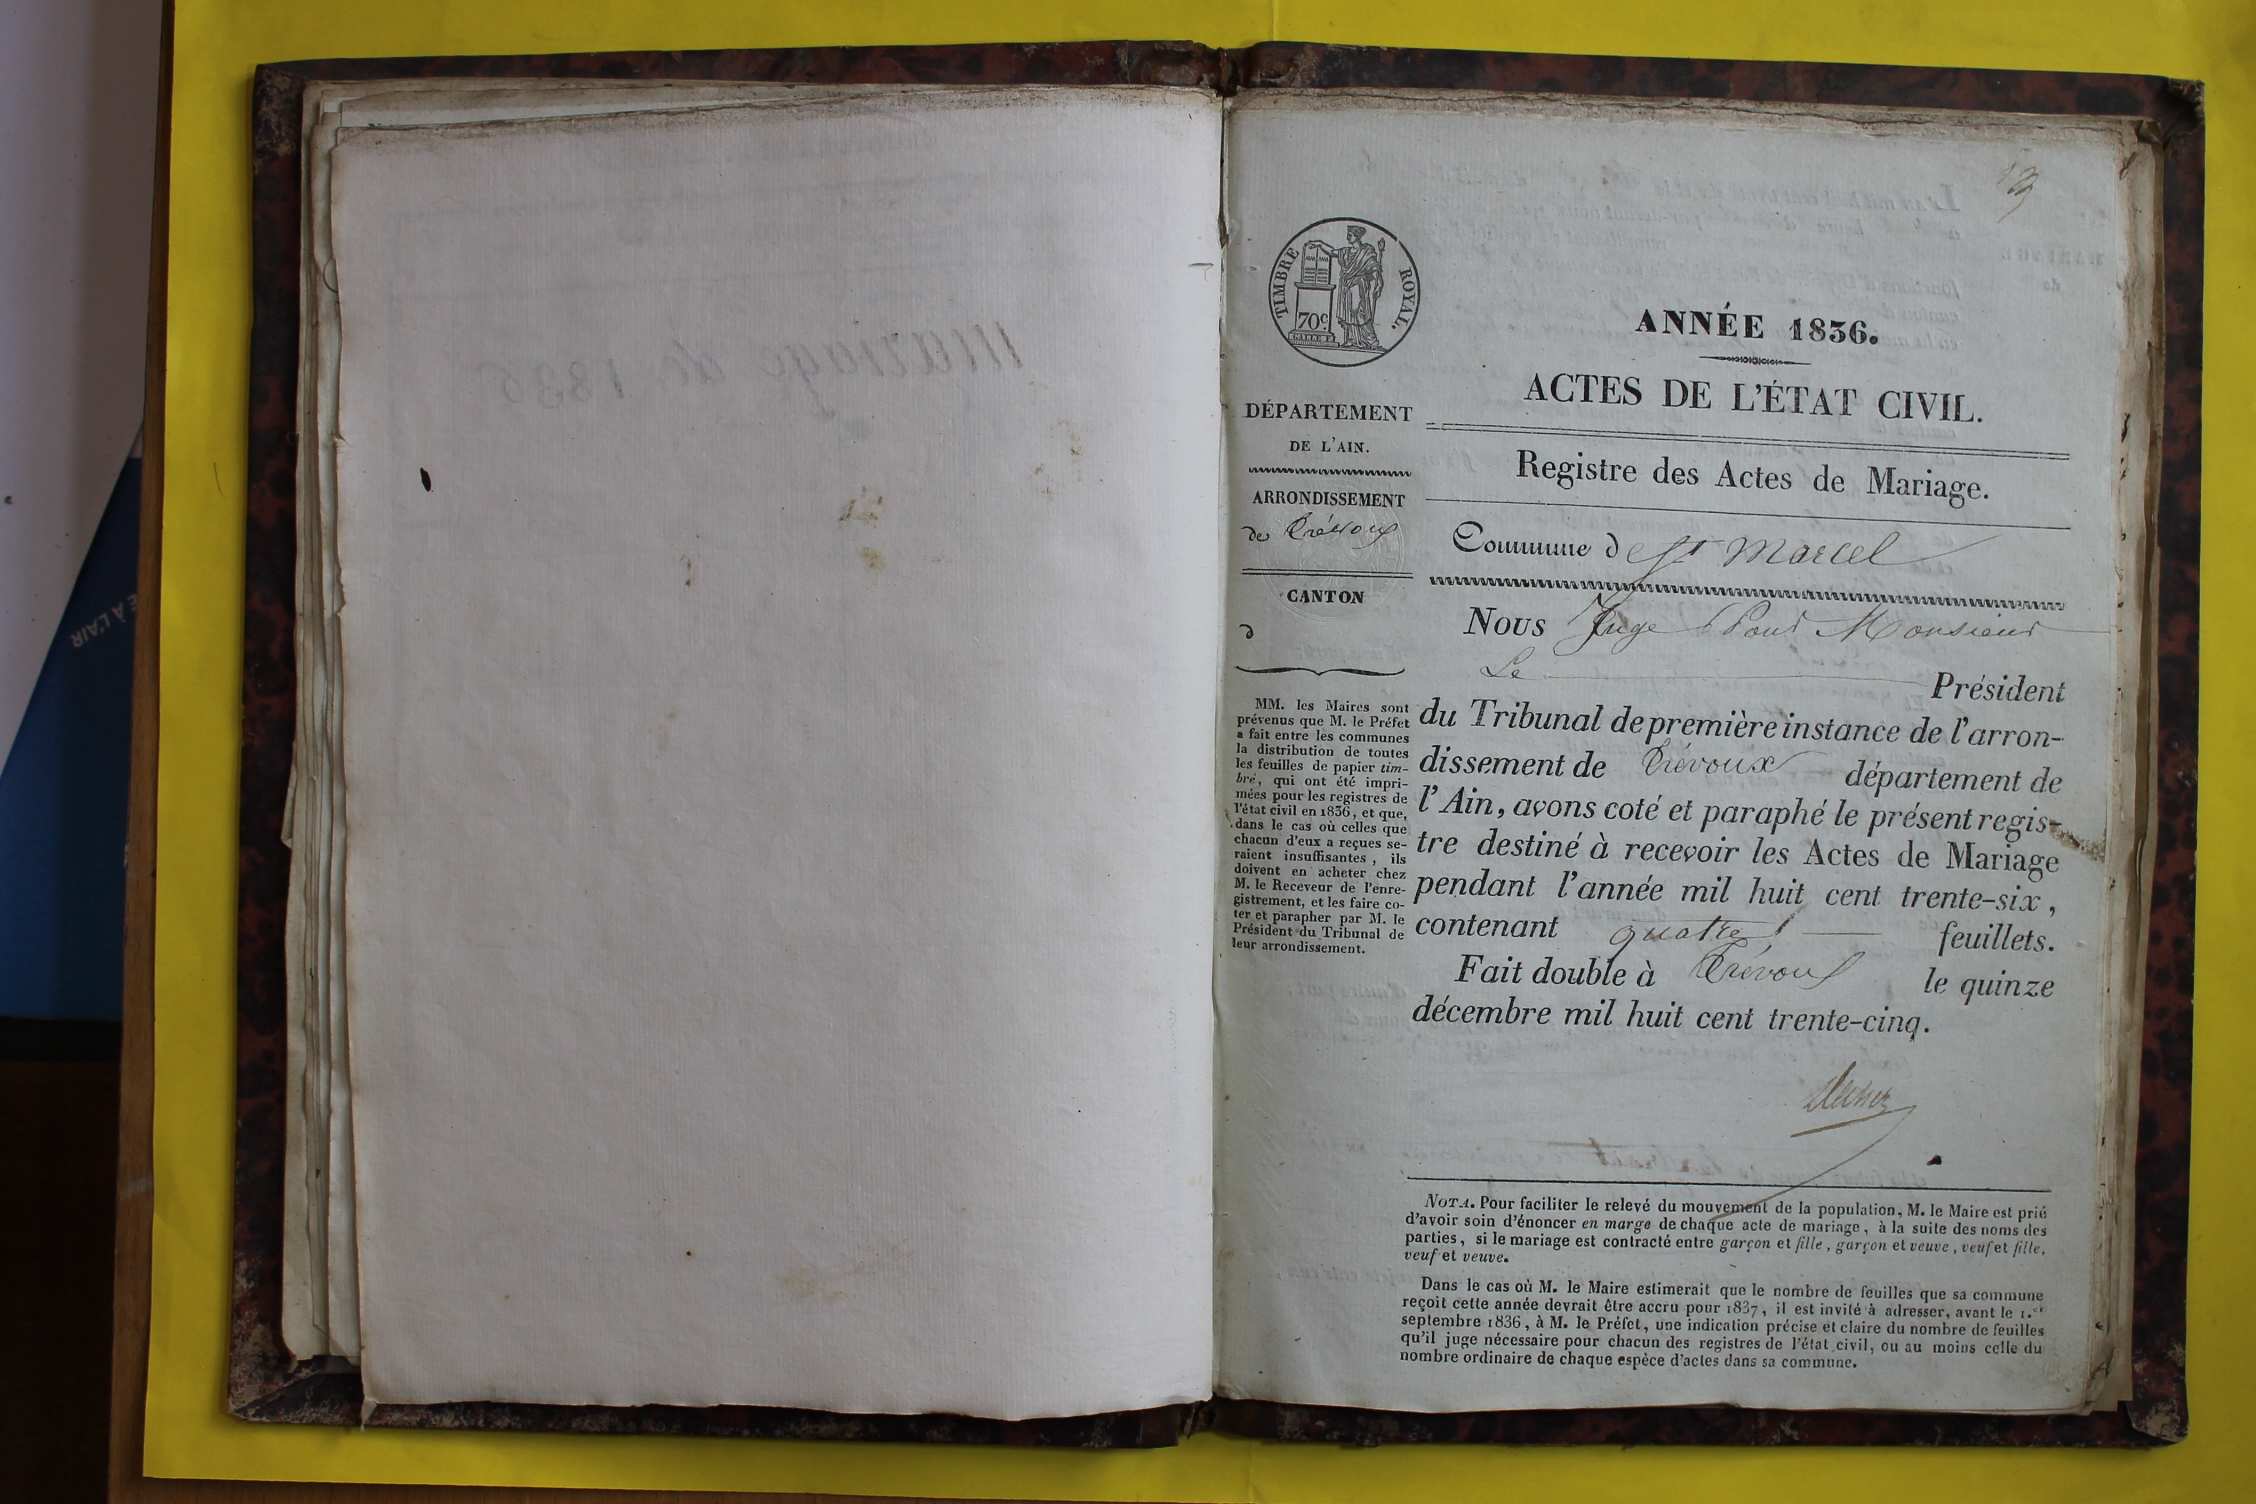 mariage de 1836
TIMBRE ROYAL.
70c.
DÉPARTEMENT
DE L'AIN.
ARRONDISSEMENT
de Trévoux
CANTON
d
MM. les Maires sont
prévenus que M. le Préfet
a fait entre les communes
la distribution de toutes
les feuilles de papier tim-
bré, qui ont été impri-
mées pour les registres de
l'état civil en 1836, et que,
dans le cas où celles que
chacun d'eux a reçues se-
raient insuffisantes, ils
doivent en acheter chez
M. le Receveur de l'enre-
gistrement, et les faire co-
ter et parapher par M. le
Président du Tribunal de
leur arrondissement.
ANNÉE 1836.
ACTES DE L'ÉTAT CIVIL.
Registre des Actes de Mariage.
Commune de St Marcel
Nous Juge Pour Monsieur
Le Président
du Tribunal de première instance de l'arron-
dissement de Trévoux département de
l'Ain, avons coté et paraphé le présent regis-
tre destiné à recevoir les Actes de Mariage
pendant l'année mil huit cent trente-six,
contenant quatre feuillets.
Fait double à Trévoux le quinze
décembre mil huit cent trente-cinq.
NOTA. Pour faciliter le relevé du mouvement de la population, M. le Maire est prié
d'avoir soin d'énoncer en marge de chaque acte de mariage, à la suite des noms des
parties, si le mariage est contracté entre garçon et fille, garçon et veuve, veuf et fille,
veuf et veuve.
Dans le cas où M. le Maire estimerait que le nombre de feuilles que sa commune
reçoit cette année devrait être accru pour 1837, il est invité à adresser, avant le 1.er
septembre 1836, à M. le Préfet, une indication précise et claire du nombre de feuilles
qu'il juge nécessaire pour chacun des registres de l'état civil, ou au moins celle du
nombre ordinaire de chaque espèce d'actes dans sa commune.
E À L'AIR